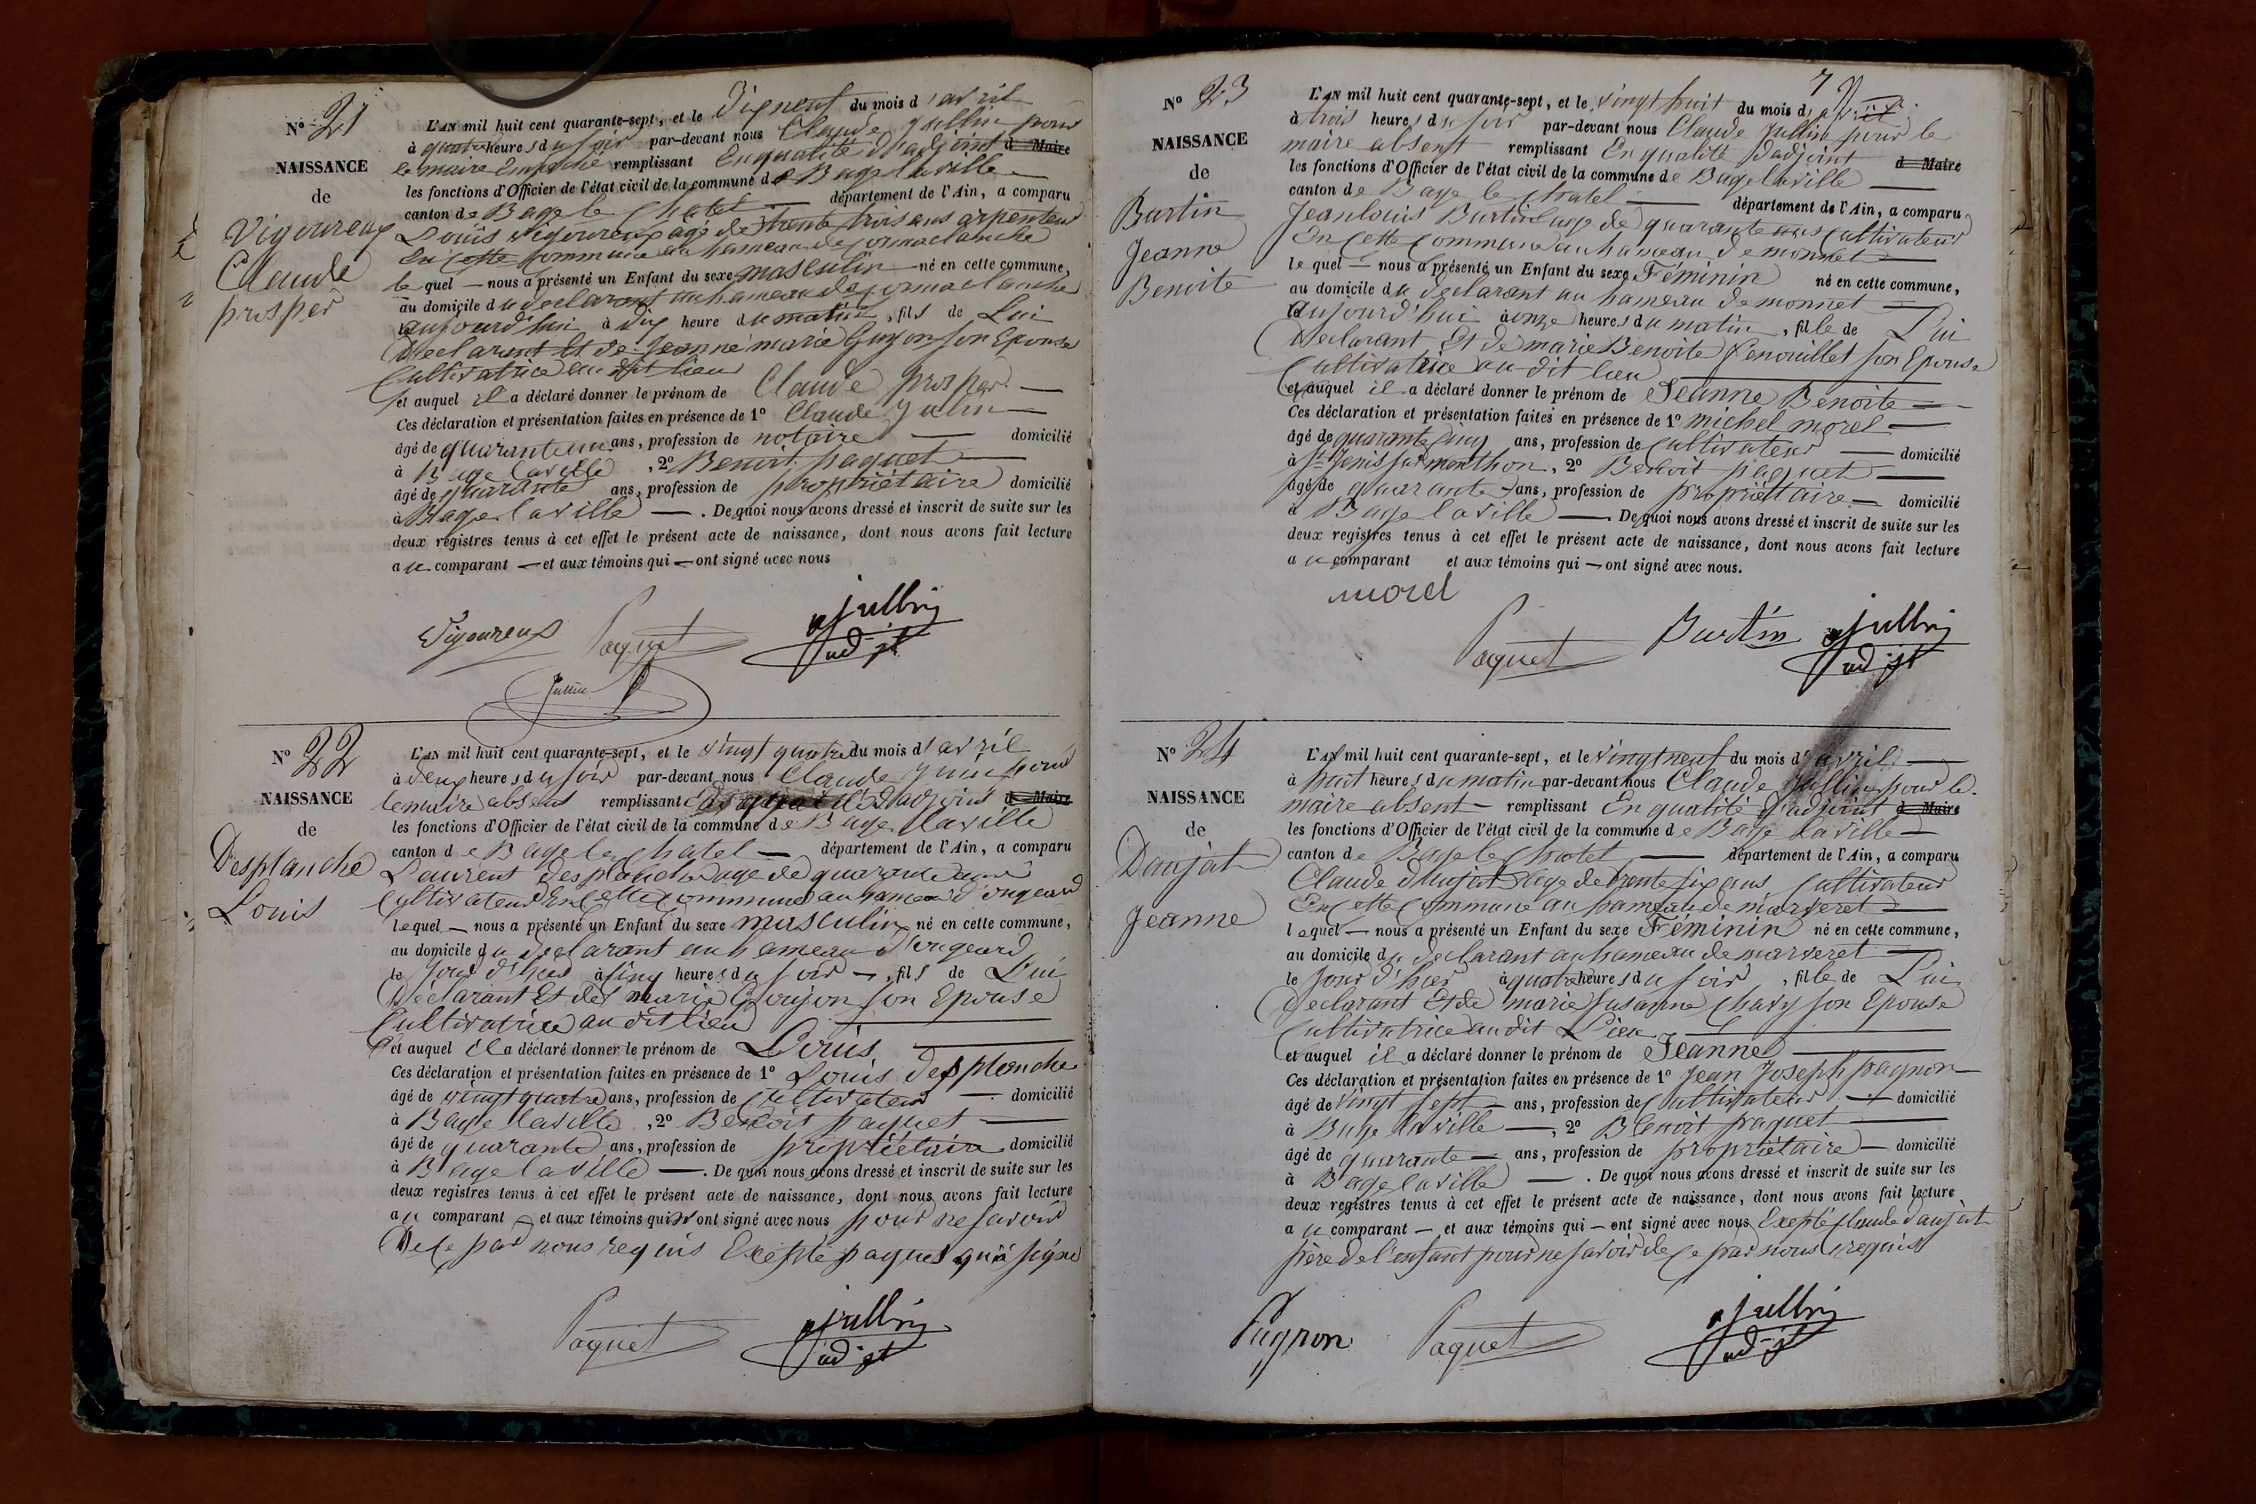 N° 21
NAISSANCE
de
Vigoureux
Claude
prosper
L'AN mil huit cent quarante-sept, et le Dixneuf du mois d'avril
à quatre heures du soir par-devant nous Claude Jullin pour
le maire Empeché remplissant En qualité d'adjoint d Maire
les fonctions d'Officier de l'état civil de la commune de Bagé laville
canton de Bage le Chatel département de l'Ain, a comparu
Louis Vigoureux agé de trente trois ans arpenteur
En cette Commune au hameau de
le quel nous a présenté un Enfant du sexe masculin né en cette commune,
au domicile du declarant au hameau de
aujourd'hui à dix heure du matin, fils de Lui
Declarant Et de Jeanne marie Guyon son Epouse
Cultivatrice au dit lieu
et auquel il a déclaré donner le prénom de Claude prosper
Ces déclaration et présentation faites en présence de 1° Claude Julin
âgé de quarante un ans, profession de notaire domicilié
à Bage laville, 2° Benoit paquet
âgé de quarante ans, profession de propriétaire domicilié
à Bage laville. De quoi nous avons dressé et inscrit de suite sur les
deux registres tenus à cet effet le présent acte de naissance, dont nous avons fait lecture
au comparant et aux témoins qui ont signé avec nous
Vigoureux Paquet Jullin
adjt
Jullin
N° 22
NAISSANCE
de
Desplanche
Louis
L'AN mil huit cent quarante-sept, et le vingt quatre du mois d'avril
à deux heures du soir par-devant nous Claude Jullin pour
le maire absent remplissant d'adjoint d Maire
les fonctions d'Officier de l'état civil de la commune de Bage laville
canton de Bage le Chatel département de l'Ain, a comparu
Laurent Desplanche age de quarante ans
Cultivateur En cette Commune au hameau d'ongeard
lequel nous a présenté un Enfant du sexe masculin né en cette commune,
au domicile du declarant au hameau d'ongeard
le Jour d'hier à cinq heures du soir, fils de Lui
Déclarant Et de marie Goujon son Epouse
Cultivatrice au dit lieu
et auquel il a déclaré donner le prénom de Louis
Ces déclaration et présentation faites en présence de 1° Louis Desplanche
âgé de vingt quatre ans, profession de Cultivateur domicilié
à Bage laville, 2° Benoit paquet
âgé de quarante ans, profession de propriétaire domicilié
à Bage laville. De quoi nous avons dressé et inscrit de suite sur les
deux registres tenus à cet effet le présent acte de naissance, dont nous avons fait lecture
au comparant et aux témoins qui n'ont signé avec nous pour ne savoir
De Ce par nous requis Excepté paquet qui a signé
Paquet Jullin
adjt
7
N° 23
NAISSANCE
de
Burtin
Jeanne
Benoite
L'AN mil huit cent quarante-sept, et le vingt huit du mois d'avril
à trois heures du soir par-devant nous Claude Jullin pour le
maire absent remplissant En qualité d'adjoint d Maire
les fonctions d'Officier de l'état civil de la commune de Bage laville
canton de Bage le Chatel département de l'Ain, a comparu
Jean louis Burtin age de quarante ans Cultivateur
En Cette Commune au hameau de monnet
le quel nous a présenté un Enfant du sexe Féminin né en cette commune,
au domicile du declarant au hameau de monnet
aujourd'hui à onze heures du matin, fille de Lui
Declarant Et de marie Benoite Penouillet son Epouse
Cultivatrice au dit lieu
et auquel il a déclaré donner le prénom de Jeanne Benoite
Ces déclaration et présentation faites en présence de 1° michel morel
âgé de quarante cinq ans, profession de Cultivateur domicilié
à St Jenis sur menthon, 2° Benoit paquet
âgé de quarante ans, profession de propriétaire domicilié
à Bage laville. De quoi nous avons dressé et inscrit de suite sur les
deux registres tenus à cet effet le présent acte de naissance, dont nous avons fait lecture
au comparant et aux témoins qui ont signé avec nous.
morel
Paquet Burtin Jullin
adjt
N° 24
NAISSANCE
de
Daujat
Jeanne
L'AN mil huit cent quarante-sept, et le vingt neuf du mois d'avril
à huit heures du matin par-devant nous Claude Jullin pour le
maire absent remplissant En qualité d'adjoint d Maire
les fonctions d'Officier de l'état civil de la commune de Bage laville
canton de Bage le Chatel département de l'Ain, a comparu
Claude daujat age de trente six ans Cultivateur
En Cette Commune au hameau de marveret
lequel nous a présenté un Enfant du sexe Féminin né en cette commune,
au domicile du declarant au hameau de marveret
le Jour d'hier à quatre heures du soir, fille de Lui
Declarant Et de marie Susanne Chavy son Epouse
Cultivatrice au dit Lieu
et auquel il a déclaré donner le prénom de Jeanne
Ces déclaration et présentation faites en présence de 1° Jean Joseph pagnon
âgé de vingt sept ans, profession de Cultivateur domicilié
à Bage laville, 2° Benoit paquet
âgé de quarante ans, profession de propriétaire domicilié
à Bage laville. De quoi nous avons dressé et inscrit de suite sur les
deux registres tenus à cet effet le présent acte de naissance, dont nous avons fait lecture
au comparant et aux témoins qui ont signé avec nous Excepté Claude daujat
père de l'enfant pour ne savoir de Ce par nous requis
Pagnon Paquet Jullin
adjt